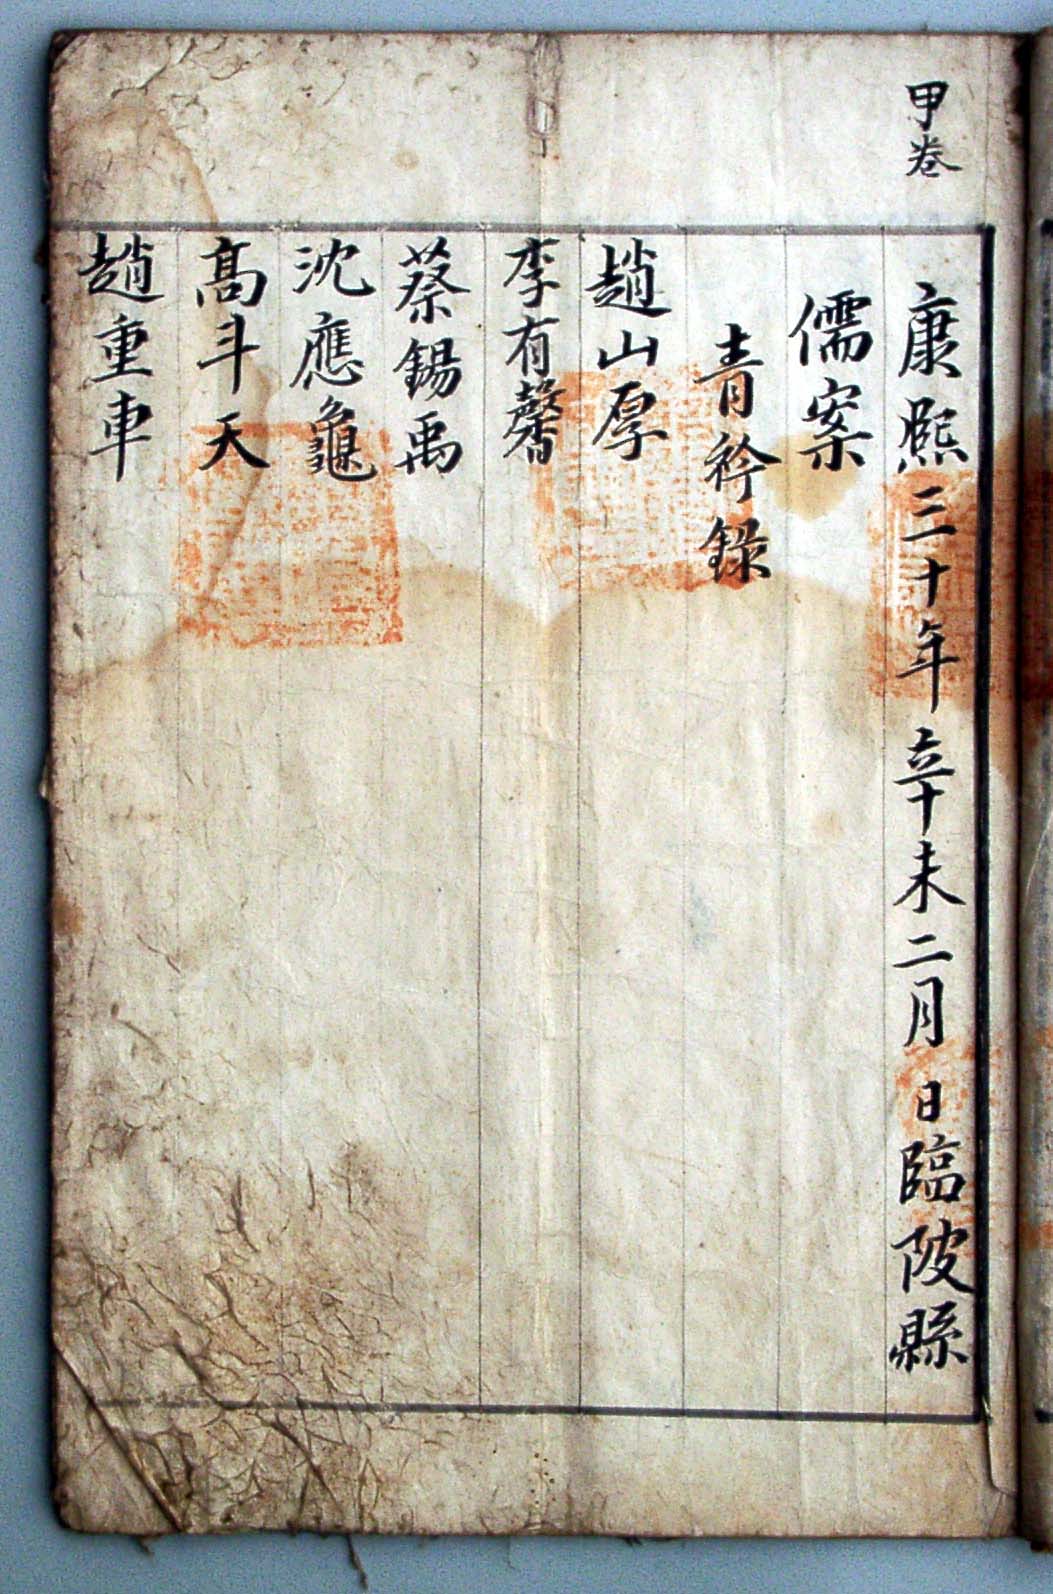 甲卷
康熙三十年辛未二月 日臨陂縣
儒案
青衿錄
趙山厚
李有馨
蔡錫禹
沈應龜
高斗天
趙重車